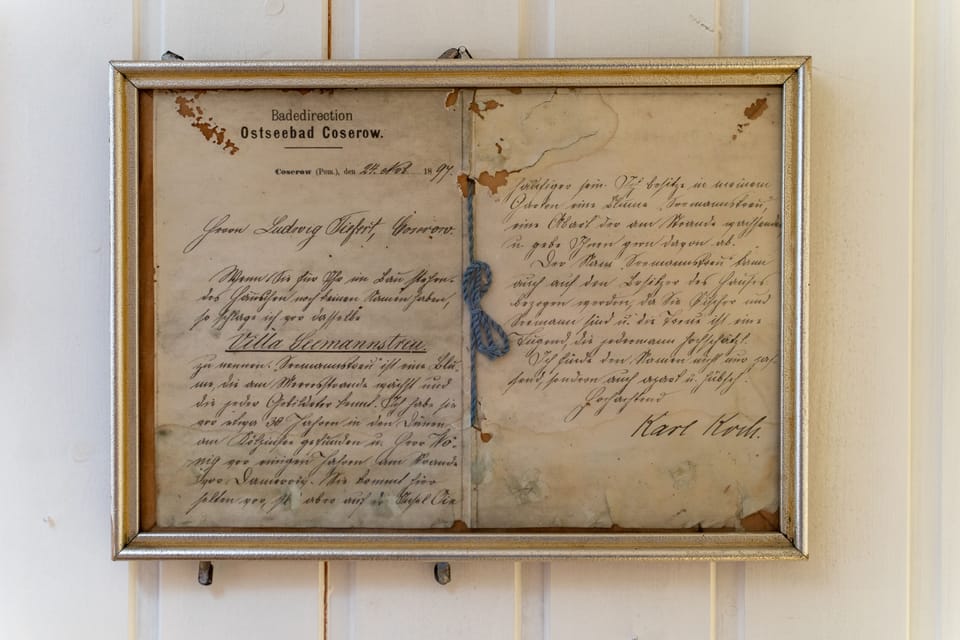 Badedirection
Ostseebad Coserow.
Coserow (Pom.), den 24. Nov. 1897.
Herrn Ludwig Tiefert, Coserow.
Wenn Sie für Ihr im Bau stehen-
des Häuschen noch keinen Namen haben,
so schlage ich vor dasselbe
Villa Seemannstreu.
zu nennen. Seemannstreu ist eine Blu-
me, die am Meeresstrande wächst und
die jeder Gebildete kennt. Ich habe sie
vor etwa 30 Jahren in den Dünen
am Kölpinsee gefunden u. Herr Kö-
nig vor einigen Jahren am Strande
von Damerow. Sie kommt hier
selten vor, ist aber auf der Insel Oie
häufiger sein. Ich besitze in meinem
Garten eine Blume Seemannstreu,
eine Abart der am Strande wachsenden
u. gebe Ihnen gern davon ab.
Der Name Seemannstreu kann
auch auf den Besitzer des Hauses
bezogen werden, da Sie Fischer und
Seemann sind u. die Treue ist eine
Tugend, die jedermann hochschätzt.
Ich finde den Namen nicht nur pas-
send, sondern auch apart u. hübsch.
Hochachtend
Karl Koch.